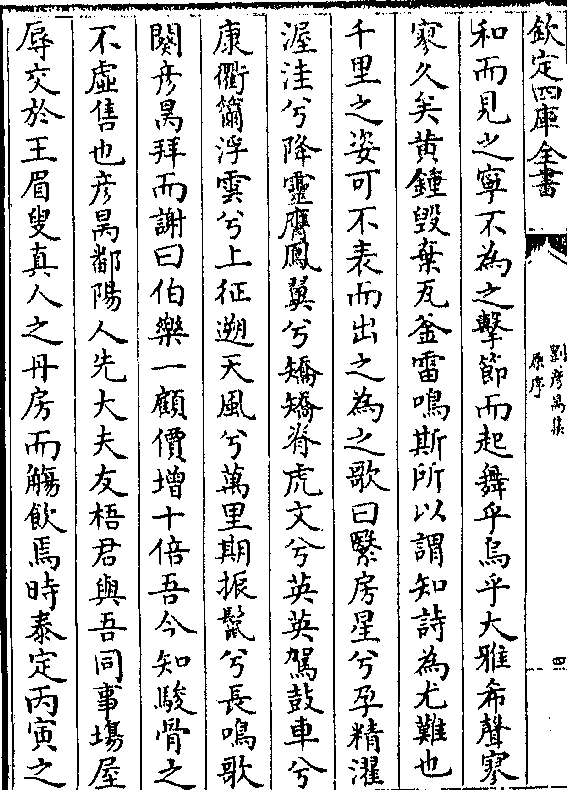 欽定四庫全書
劉彥昺集
原序
四
和而見之寧不為之擊節而起舞乎烏乎大雅希聲寥
寥久矣黃鍾毀棄瓦釜雷鳴斯所以謂知詩為尤難也
千里之姿可不表而出之為之歌曰繄房星兮孕精濯
渥洼兮降靈膺鳳翼兮矯矯脊虎文兮英英駕鼓車兮
康衢籋浮雲兮上征遡天風兮萬里期振鬣兮長鳴歌
闋彥昺拜而謝曰伯樂一顧價增十倍吾今知駿骨之
不虛售也彥昺鄱陽人先大夫友梧君與吾同事塲屋
辱交於王眉叟真人之丹房而觴飲焉時泰定丙寅之